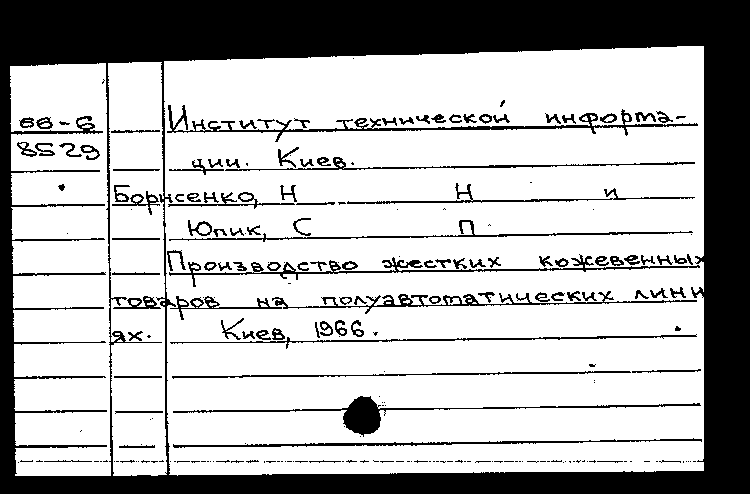 66-6 Институт технической информа-
8529 ции. Киев.
Борисенко, Н Н и
Юпик, С П
Производство жестких кожевенных
товаров на полуавтоматических лини
ях. Киев, 1966.